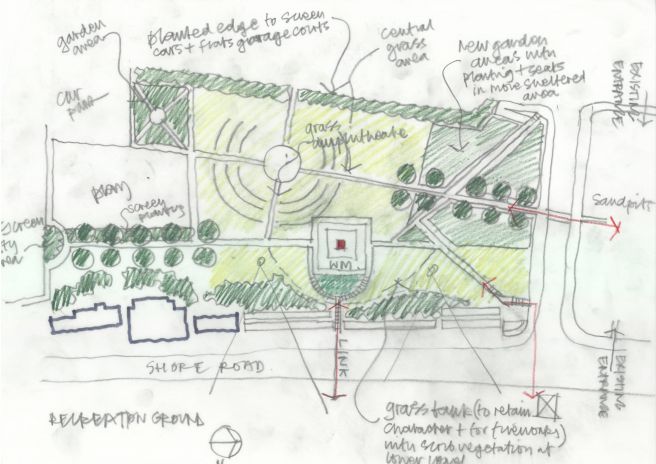 garden
area
planted edge to screen
cars + flats garage courts
central
grass
area
New garden
areas with
planting + seats
in more sheltered
area
EXISTING
ENTRANCE
car
park
grass
amphitheatre
play
screen
planting
Sandpits
screen
area
WM
LINK
SHORE ROAD
EXISTING
ENTRANCE
RECREATION GROUND
grass bank (to retain
character + for fireworks)
with scrub vegetation at
lower level
N